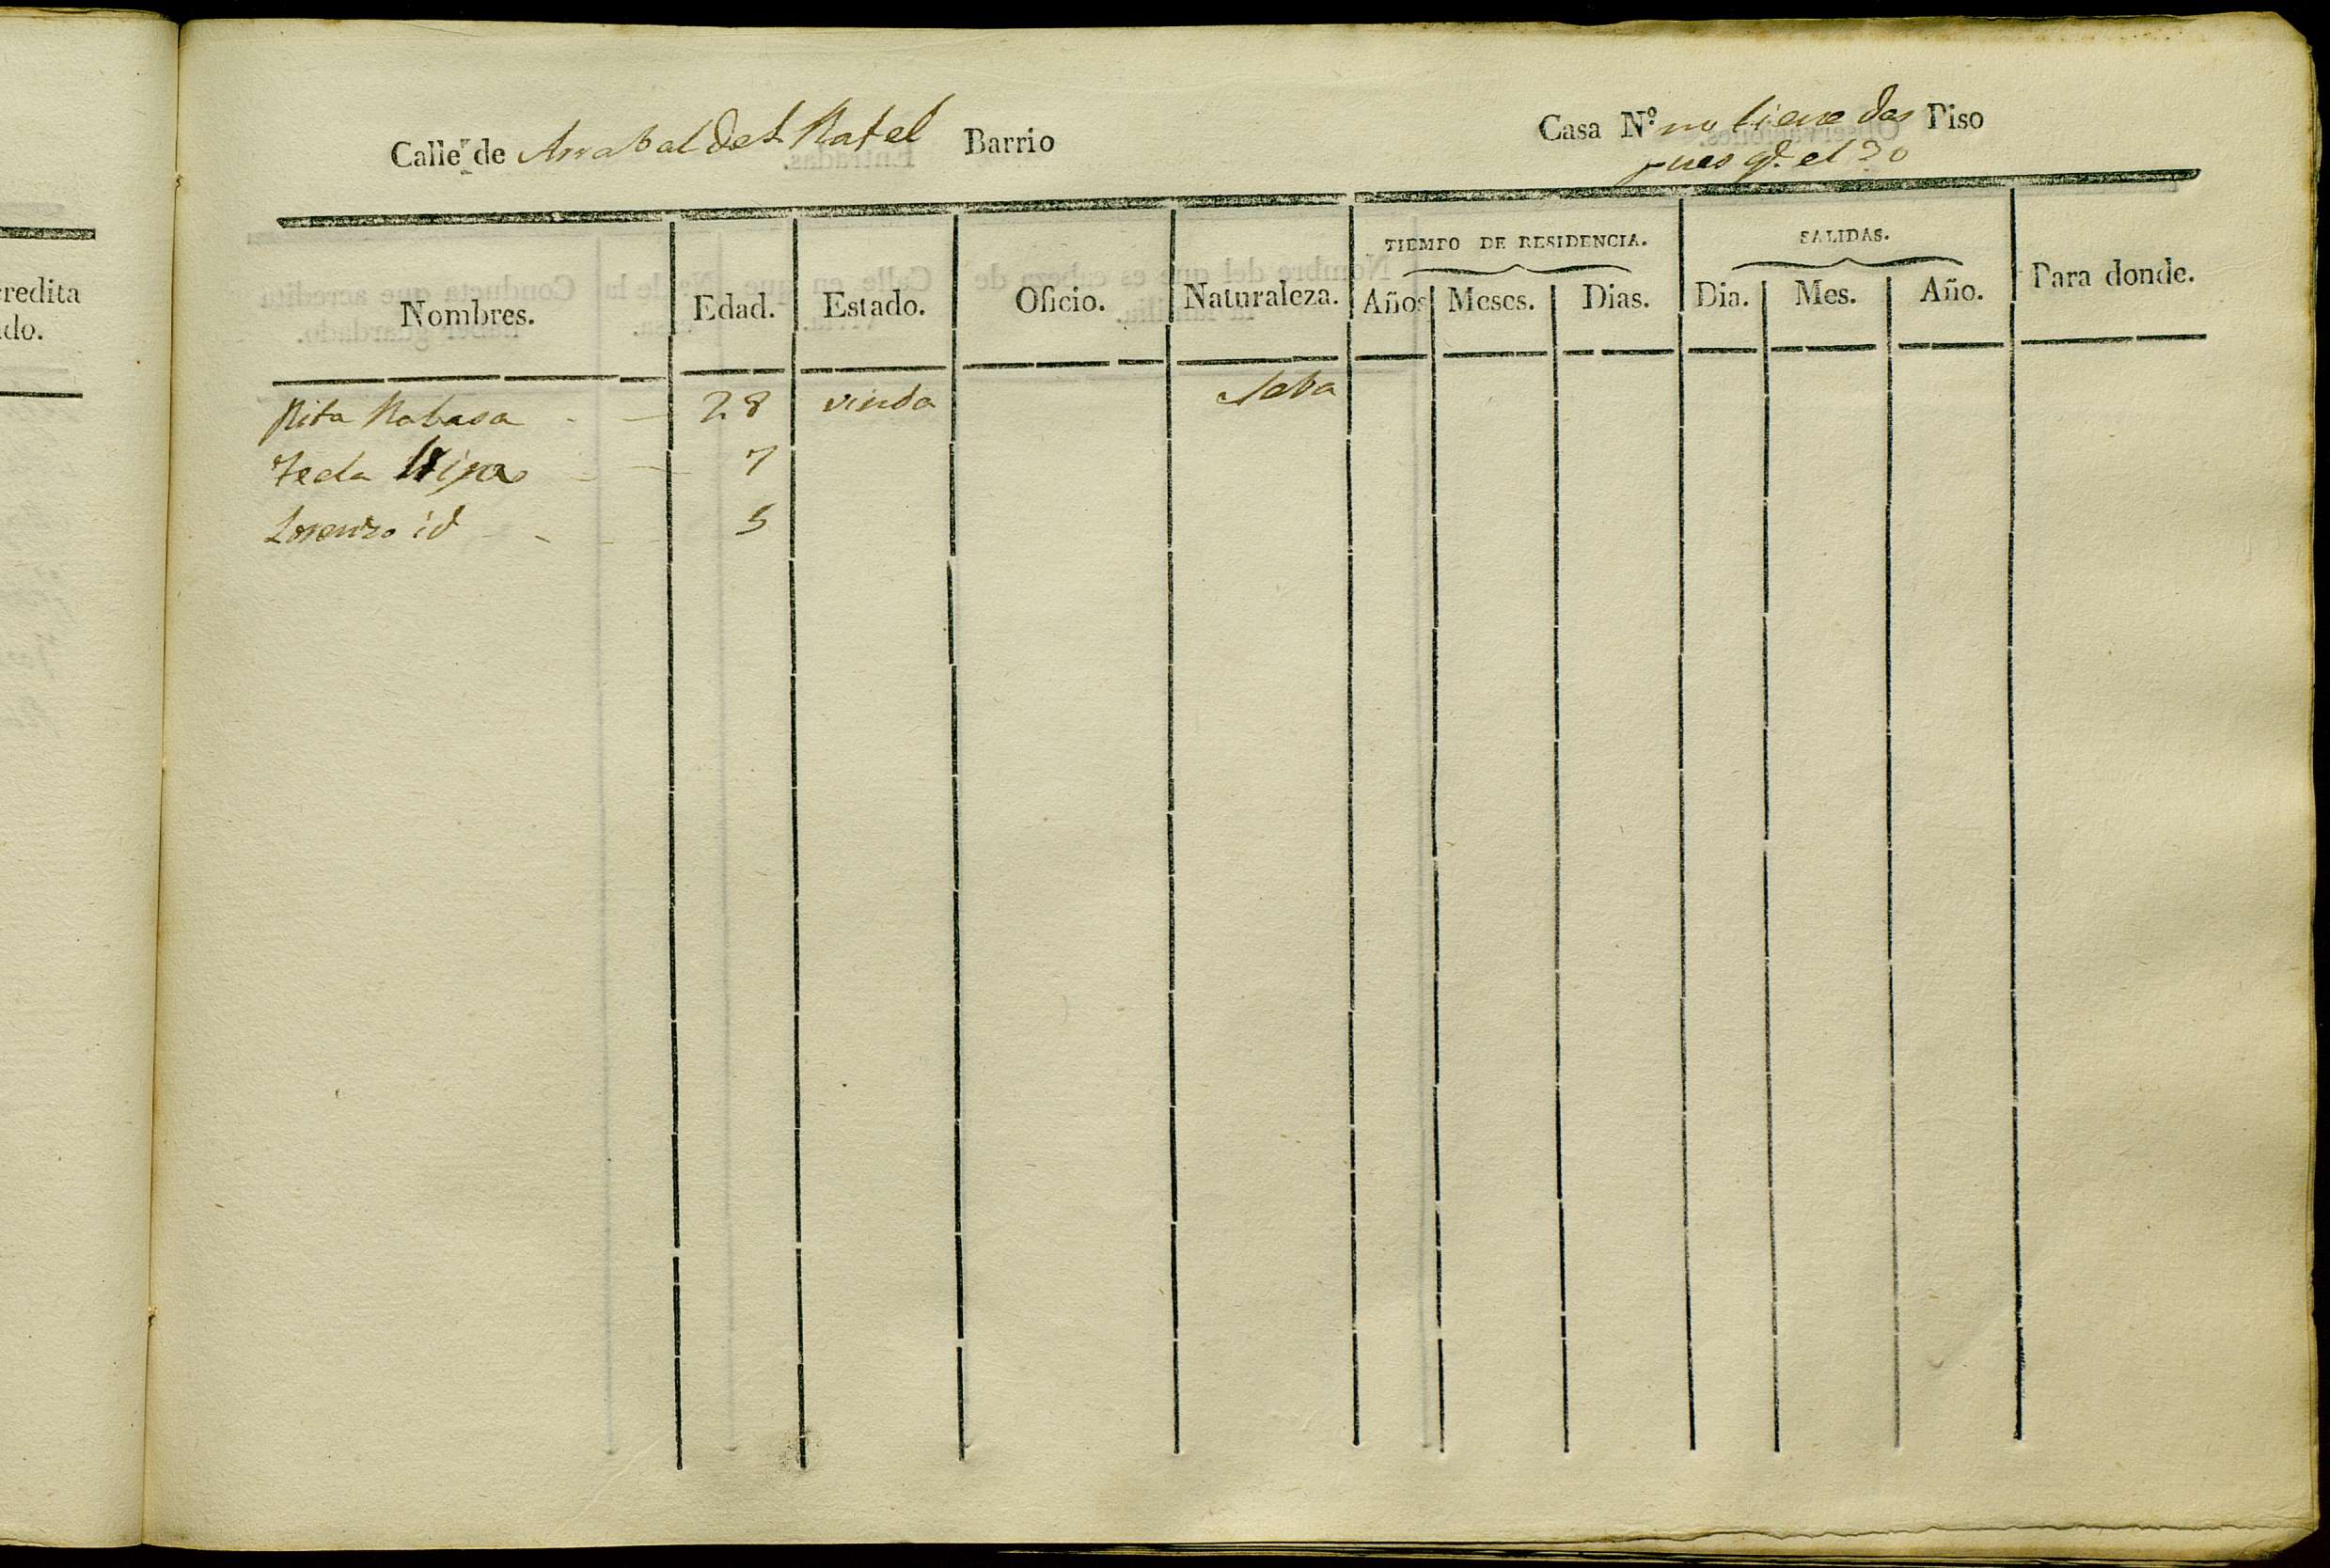 Calle de Arrabal del Rafel Barrio
Casa N.º no tiene dos Piso
pues q.e el 30
TIEMPO DE RESIDENCIA.
SALIDAS.
Nombres. Edad. Estado. Oficio. Naturaleza. Años Meses. Dias. Dia. Mes. Año. Para donde.
Rita Rabasa 28 viuda
Tecla Hija 7
Lorenzo id 5
redita
do.